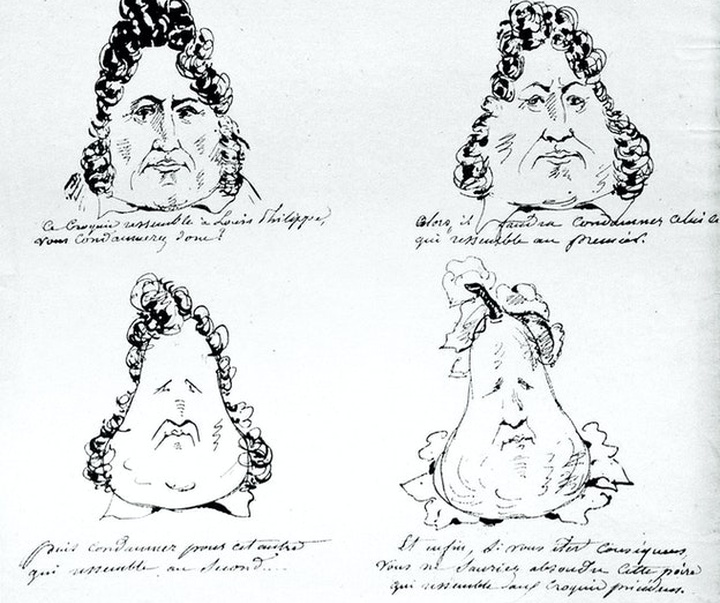 Ce Croquis ressemble à Louis Philippe,
vous Condamnerez donc?
Alors, il faudra Condamner celui ci
qui ressemble au premier.
Puis condamner pour cet autre
qui ressemble au second...
Et enfin, si vous êtes Conséquens,
Vous ne Sauriez absoudre cette poire
qui ressemble aux Croquis précédens.